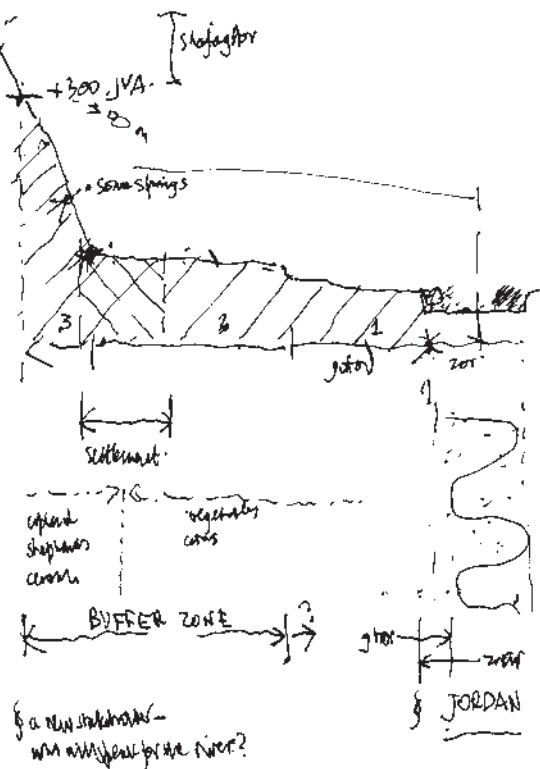 +300 JVA.
some springs
3
3
1
ghor
zor
settlement
upland
shepherds
cereals
vegetables
BUFFER ZONE
?
ghor
zor
JORDAN
§ a new stakeholder –
who will speak for the river?